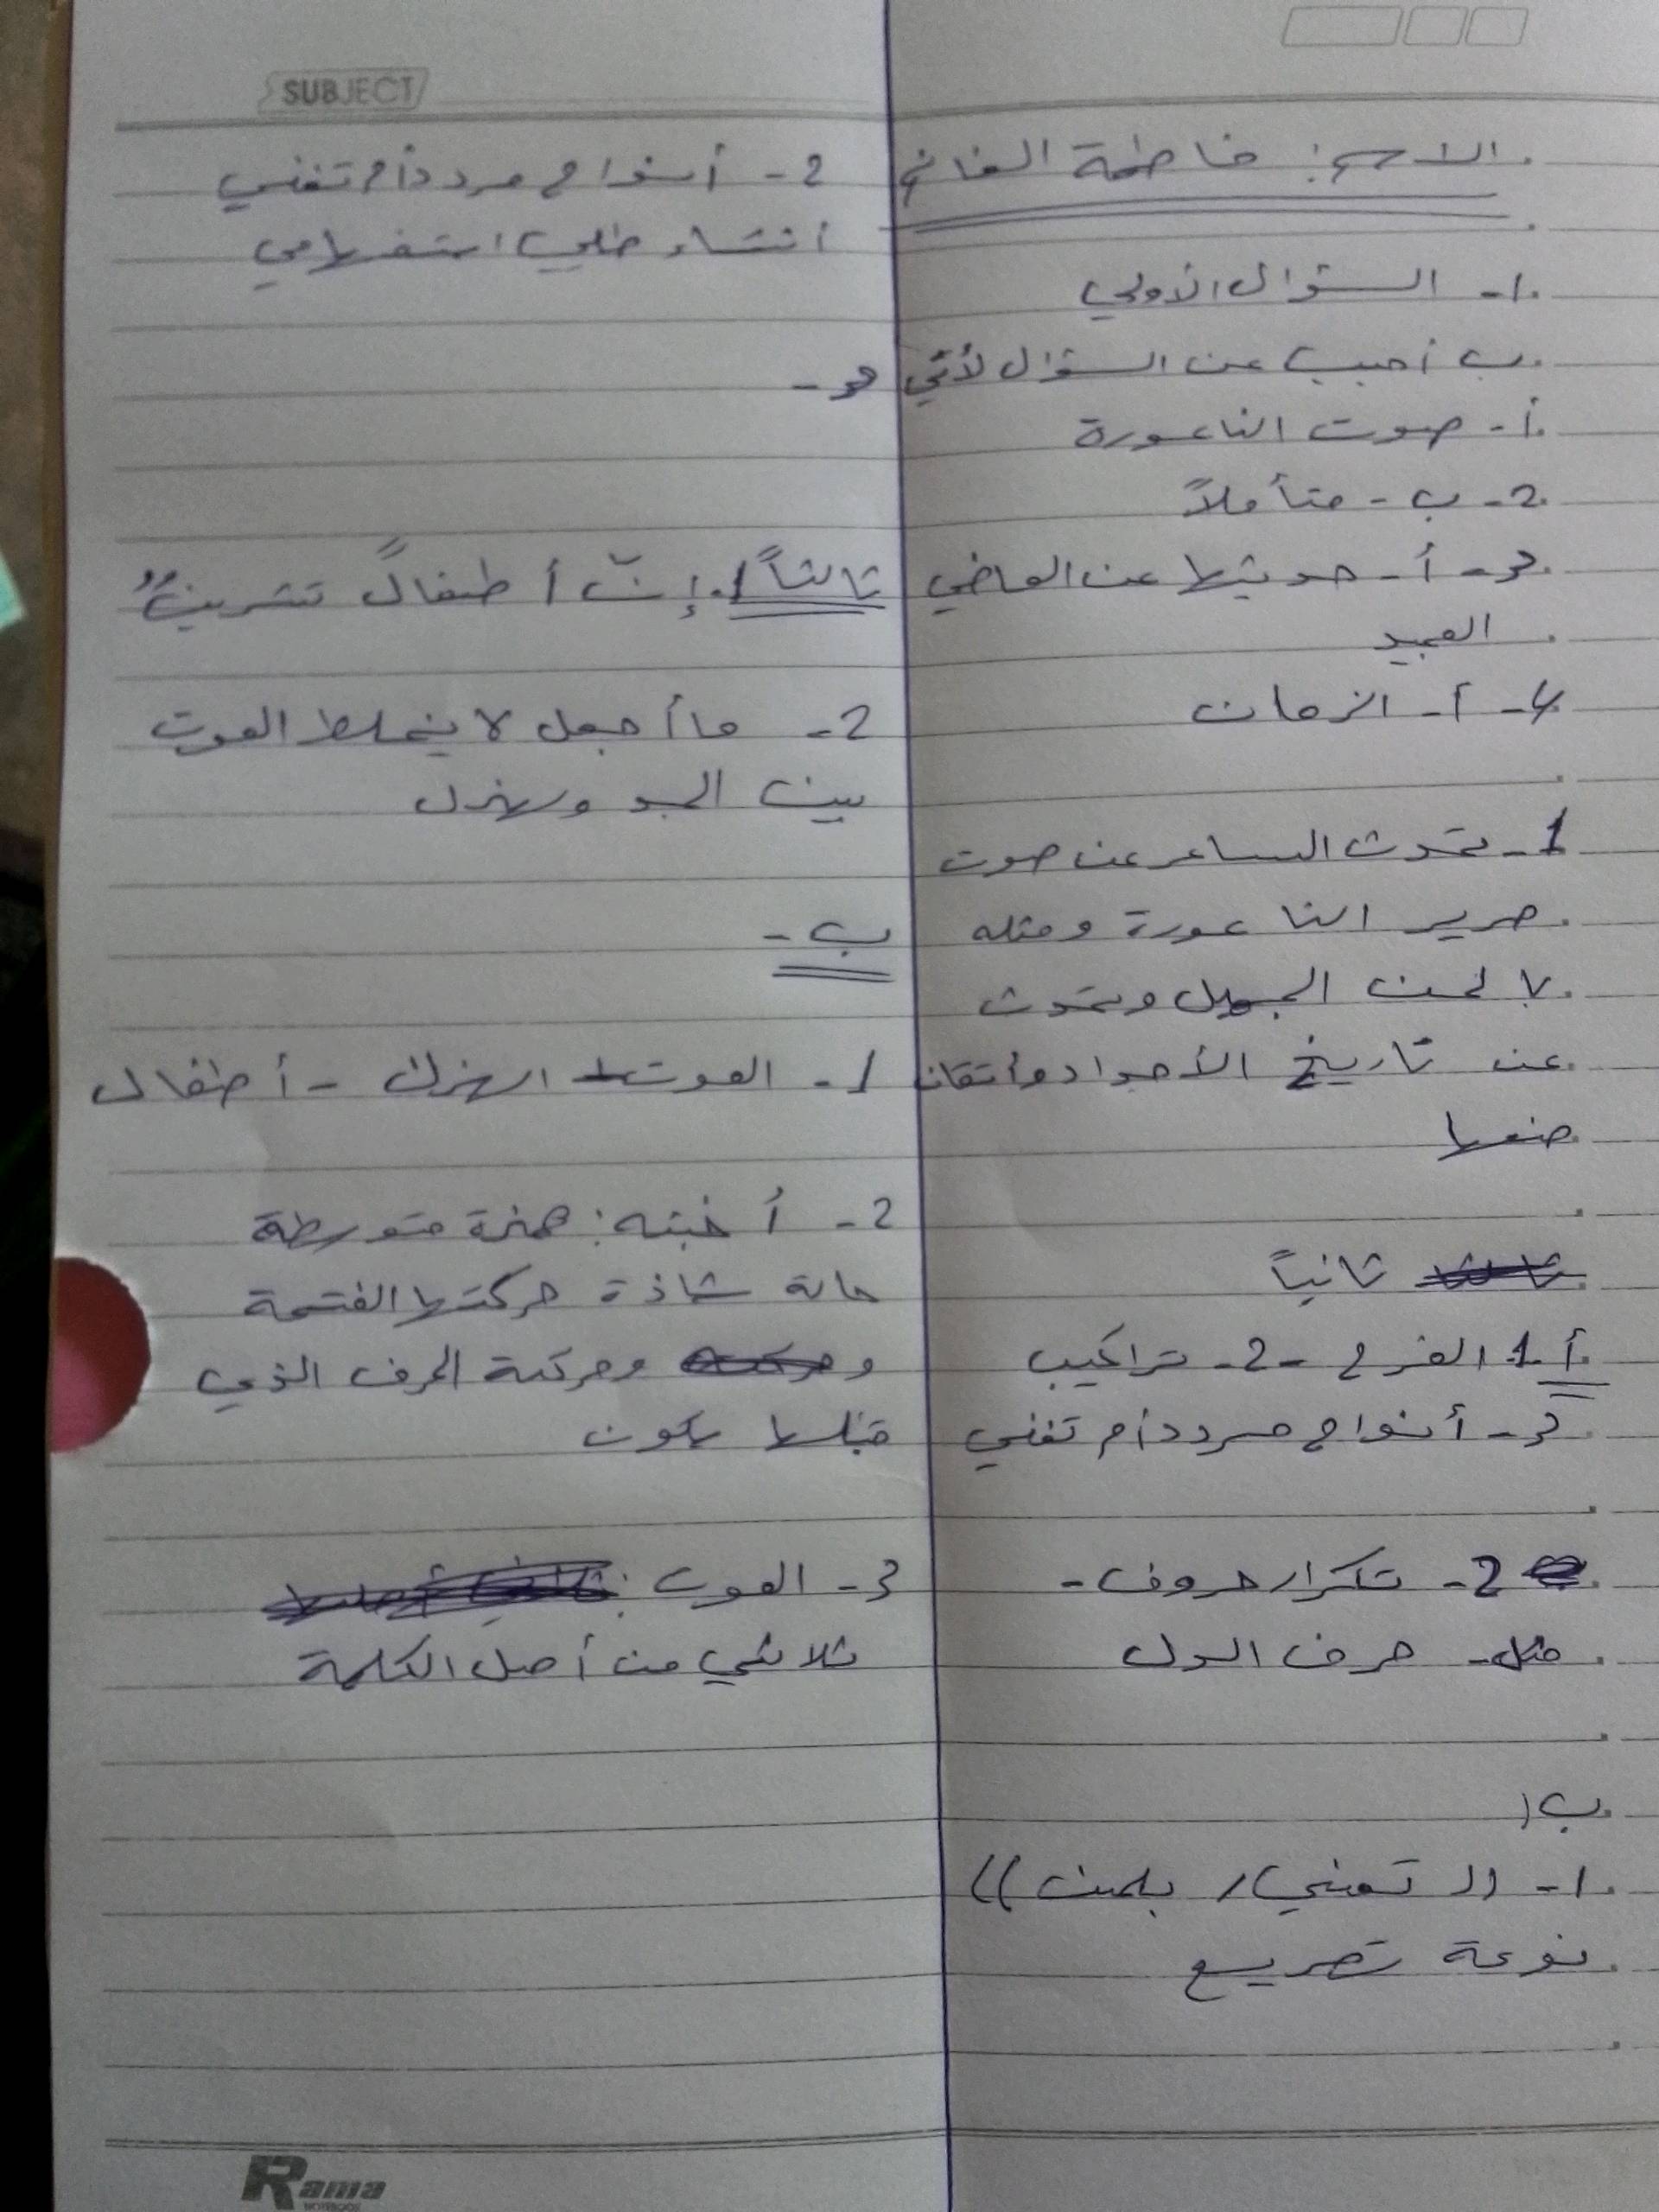 SUBJECT
الاسم: فاطمة الغانم
1- السؤال الأولى
ب أجيب عن السؤال لأتي
أ- صوت الناعورة
2- ب - متأملاً
3- أ- حديثها عن الماضي
المجيد
4- أ- الزمان
1- تحدث الساعر عن صوت
صرير الناعورة ومثله
بالحن الجميل وتحدث
عن تاريخ الأجداد وأتقان
صنعها
ثانياً
أ 1. الفرح -2- تراكيب
3- أنواح مردد أم تغني
2- تكرار حروف -
مثل- حرف الدل
ب)
1- (( تغني / بلحن ))
نوعة تصريع
2- أنواح مردد أم تغني
انشاء طلبي استفهامي
3-
ثالثاً 1. إنّ أطفالً تشرينٌ
2- ما أجمل لا يخلط الموت
بين الجد وهزل
ب -
1- الموت - الهزل - أطفال
2- أخبته: همزة متوسطة
حالة شاذة حركتها الفتحة
و وحركة الحرف الذي
قبلها سكون
3- الموت :
ثلاثي من أصل الكلمة
Rama
NOTEBOOK